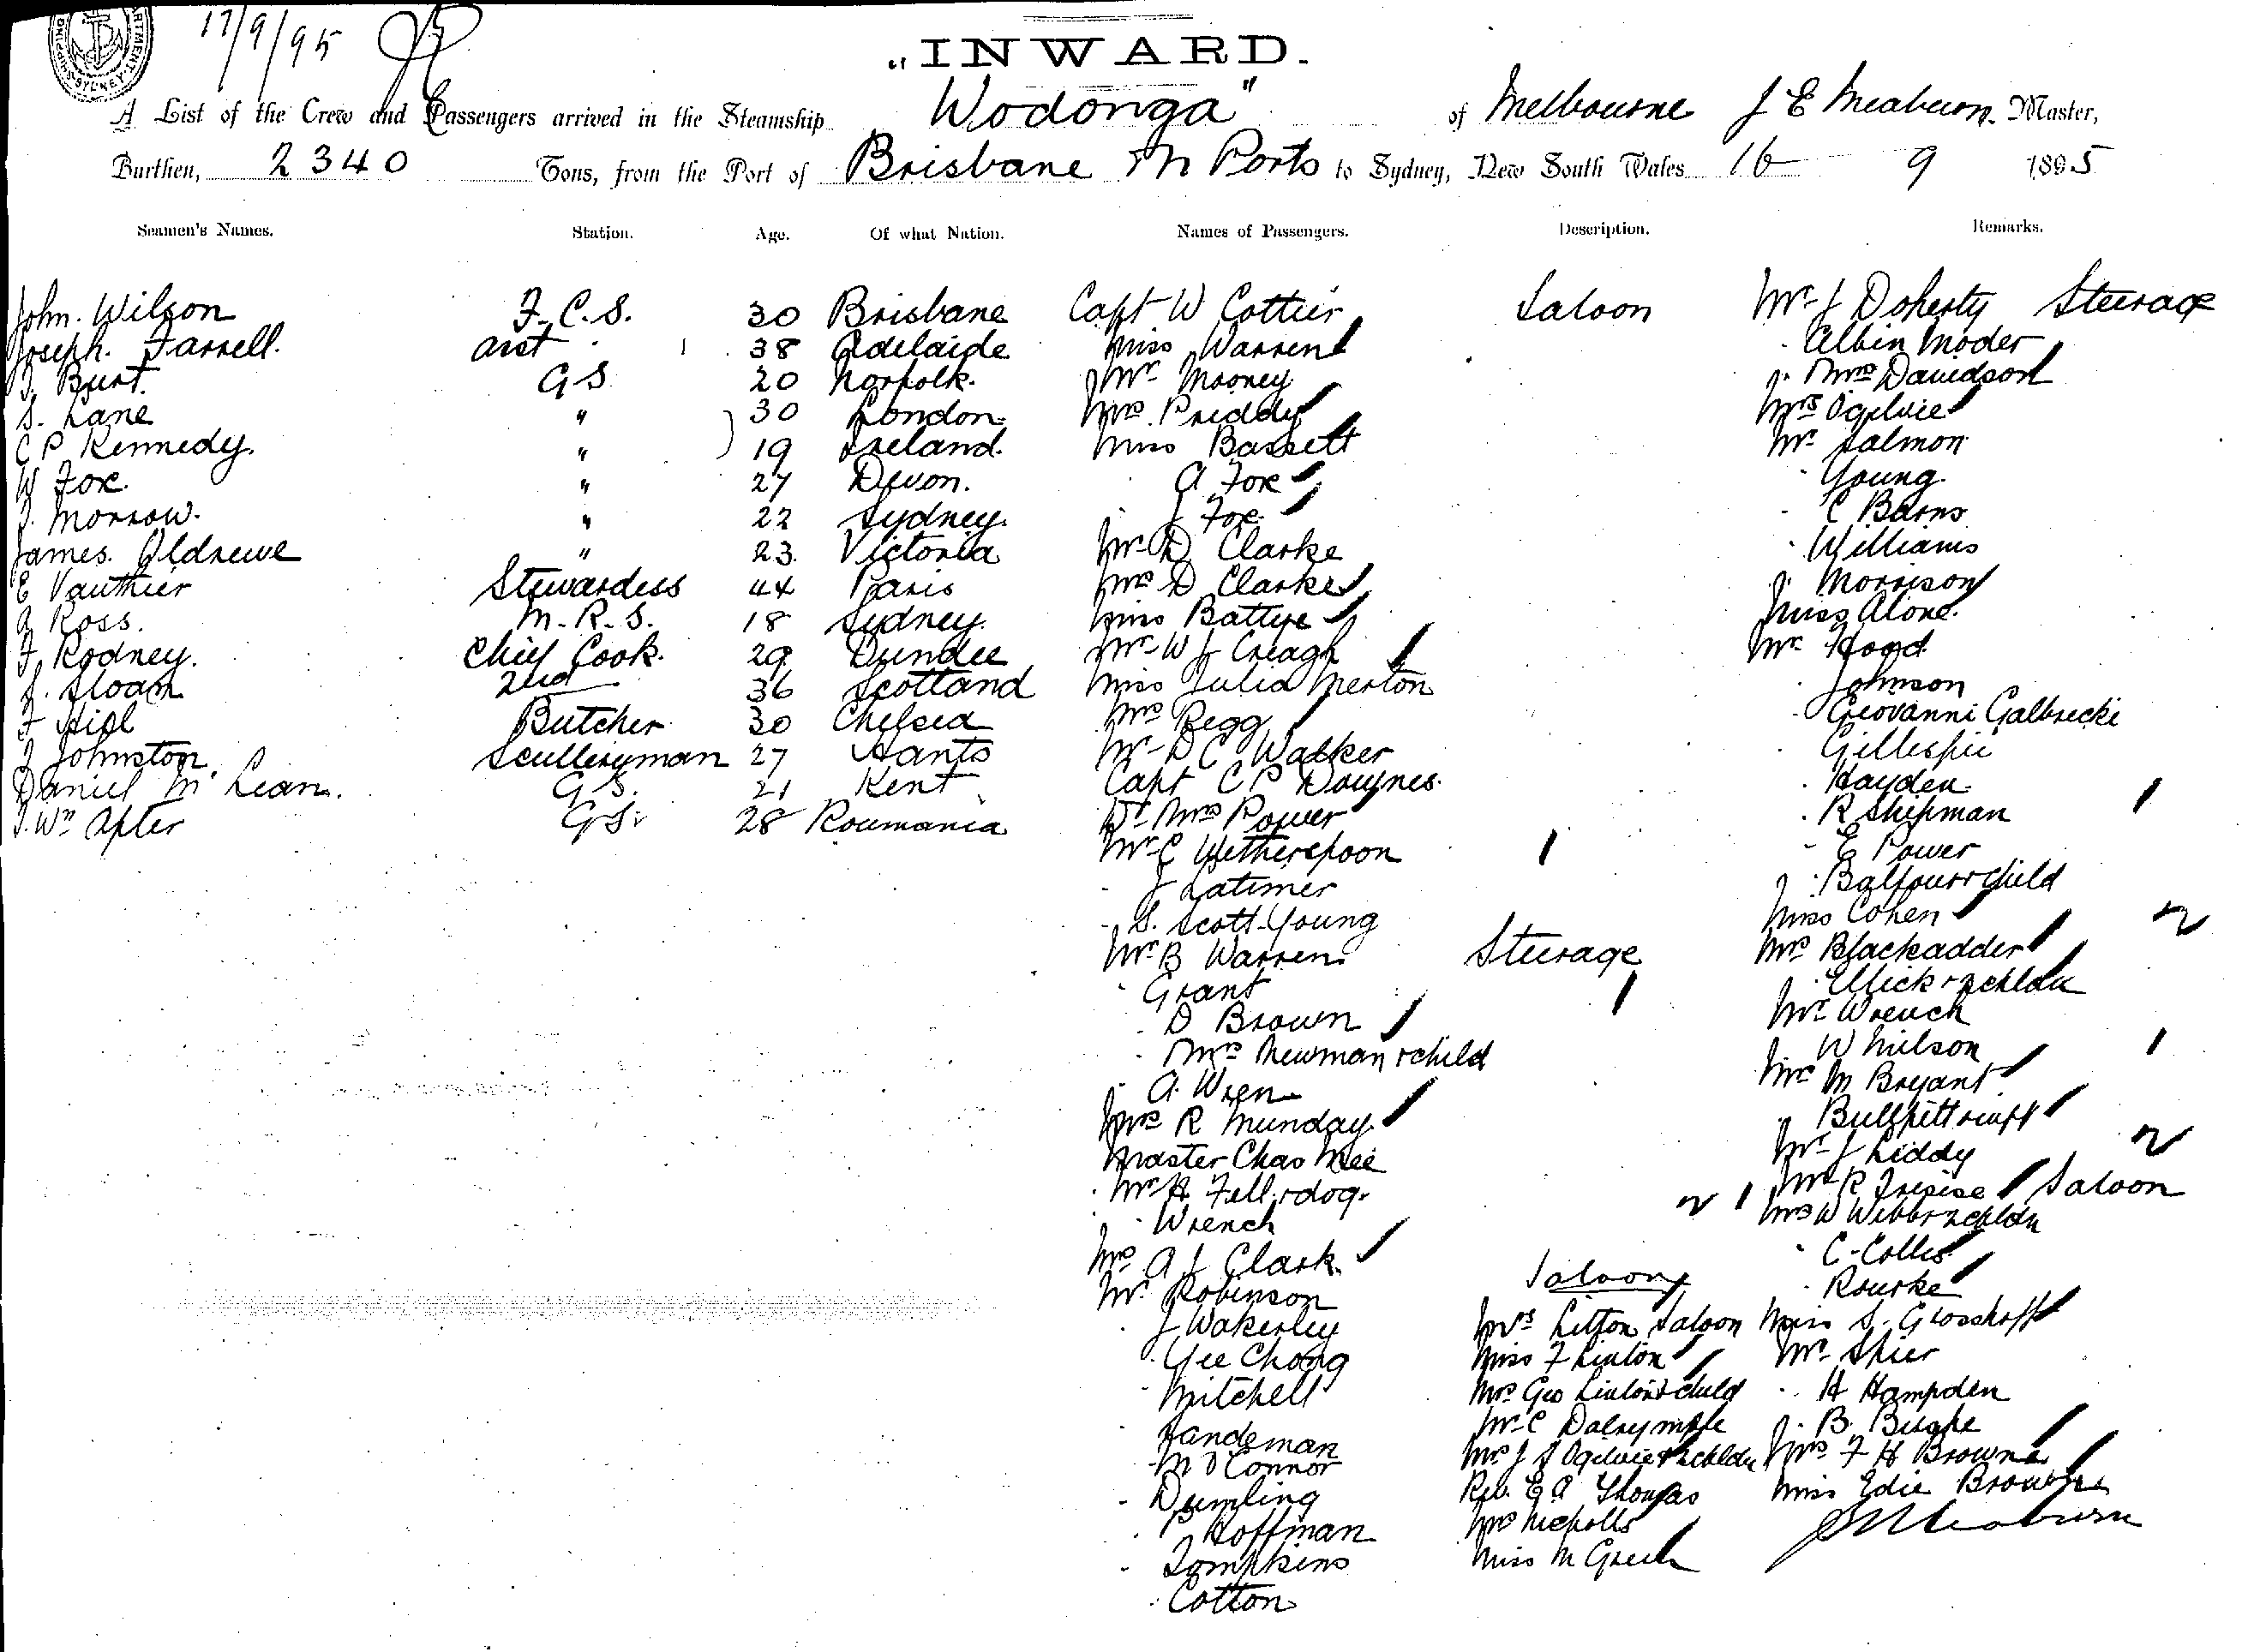 17/9/95
"INWARD.
A List of the Crew and Passengers arrived in the Steamship "Wodonga" of Melbourne J E Meaburn Master,
Burthen, 2340 Tons, from the Port of Brisbane & N Ports to Sydney, New South Wales 16 9 1895
Seamen's Names. Station. Age. Of what Nation. Names of Passengers. Description. Remarks.
John. Wilson F.C.S. 30 Brisbane
Joseph. Farrell. asst 38 Adelaide
Burt. G S 20 Norfolk.
S. Lane " 30 London.
C P Kennedy. " 19 Ireland.
W Fox. " 27 Devon.
Morrow. " 22 Sydney.
James. " 23. Victoria
E Vauthier Stewardess 44 Paris
A Ross. M.R.S. 18 Sydney.
F. Rodney. Chief Cook. 29 Dundee
J. Sloan 2nd 36 Scotland
F Butcher 30 Chelsea
J Johnston Sculleryman 27 Hants
Daniel Mc Lean. G S. 21 Kent
Wm Apter G S. 28 Roumania
Capt W Cottier Saloon
Miss Warren
Mr Mooney
Mrs Priddy
Miss Bassett
A Fox
J Fox.
Mr D Clarke
Mrs D Clarke
Miss Battye
Mr W J Creagh
Miss Julia Merton
Mrs Begg
Mr D C Walker
Capt C P Downes.
Dr Mrs Power
Mr C Wetherspoon
J Latimer
S. Scott-Young
Mr B Warren Steerage
Grant
D Brown
Mrs Newman + child
A. Wren
Mrs R Munday
Master Chas Mee
Mr H Fell + dog.
Wrench
Mrs A J Clark
Mr Robinson
J Wakerley
Yee Chong
Mitchell
Sandeman
M O'Connor
Dumling
P Hoffman
Tompkins
Cotton
Saloon
Mrs Litton Saloon
Miss F Linton
Mrs Geo Linton + child
Mr C Dalrymple
Mrs J S Ogilvie + 2 chldn
Rev. E A Thomas
Mrs Nicholls
Miss M
Mr J Doherty Steerage
Albin Moder
Mrs Davidson
Mrs Ogilvie
Mr Salmon
Young.
C Barns
Williams
Morrison
Miss Alone.
Mr Hood
Johnson
Geovanni Galbrecki
Gillespie
Hayden
R Shipman
E Power
Balfour + child
Miss Cohen
Mrs Blackadder
Ellick + 2 chldn
Mr Wrench
W Neilson
Mrs M Bryant
Bullpitt + inft
Mr J Liddy
R Saloon
Mrs W Webb + 2 chldn
C. Collis
Rourke
Miss S. Grosskopf
Mr Spier
H Hampden
B.
Mrs F H Browne
Miss Edie Browne
J E Meaburn